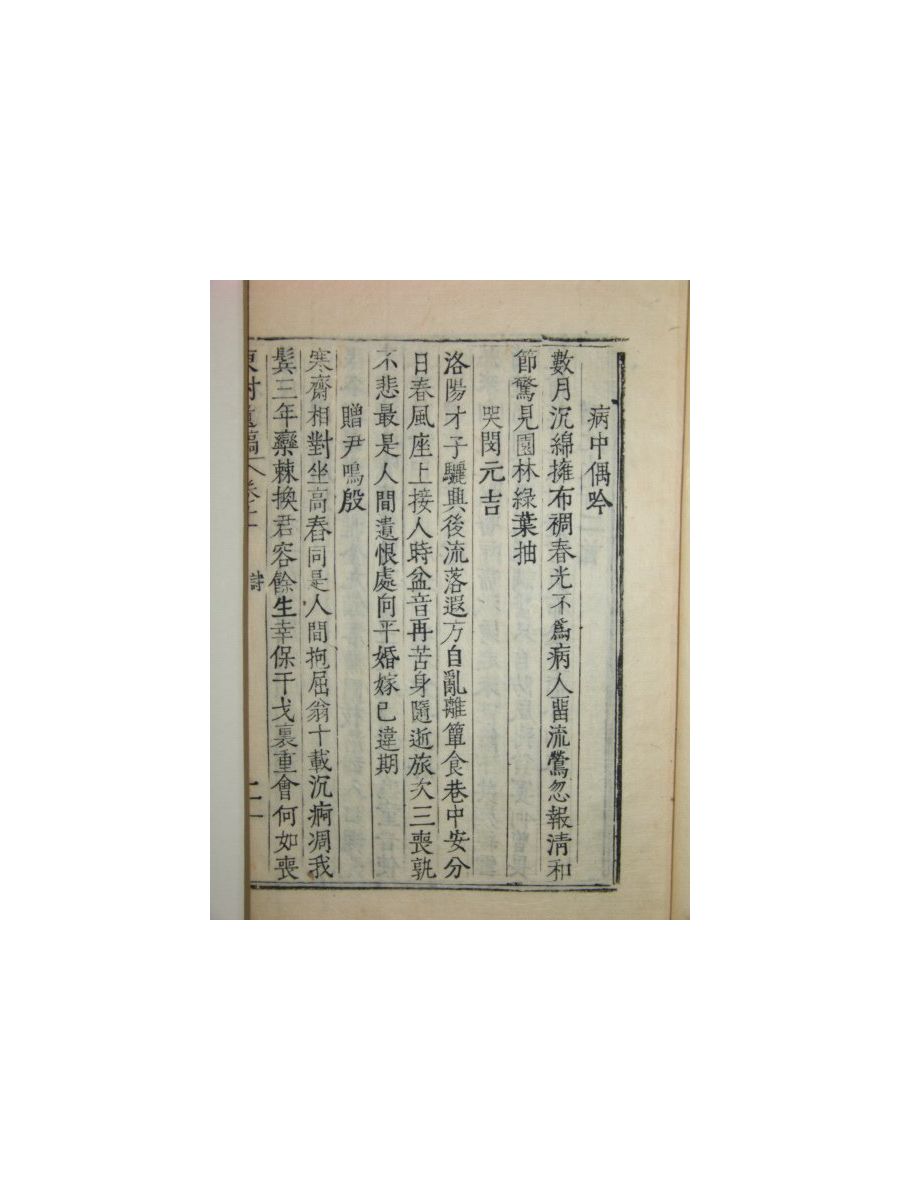 病中偶吟
數月沉綿擁布裯春光不爲病人畱流鶯忽報清和
節驚見園林綠葉抽
哭閔元吉
洛陽才子驪興後流落遐方自亂離簞食巷中安分
日春風座上接人時盆音再苦身隨逝旅次三喪孰
不悲最是人間遺恨處向平婚嫁已違期
贈尹鳴殷
寒齋相對坐高舂同是人間抱屈翁十載沉痾凋我
鬂三年欒棘換君容餘生幸保干戈裏重會何如喪
遺稿 卷之 詩 二